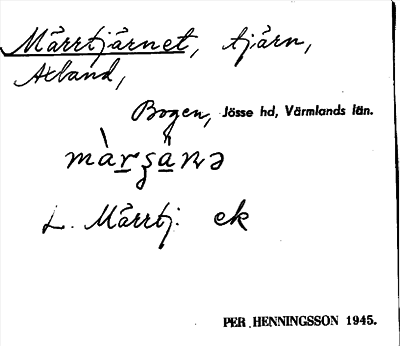 Märrtjärnet, tjärn,
Axland,
Bogen, Jösse hd, Värmlands län.
L. Märrtj. ek
PER HENNINGSSON 1945.